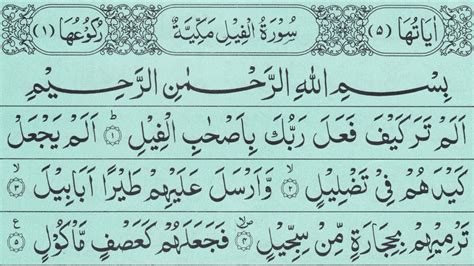 اٰيَاتُهَا (٥) سُوْرَةُ الْفِيْلِ مَكِّيَّةٌ رُكُوْعُهَا (١)
بِسْمِ اللهِ الرَّحْمٰنِ الرَّحِيْمِ
اَلَمْ تَرَ كَيْفَ فَعَلَ رَبُّكَ بِاَصْحٰبِ الْفِيْلِ ۝١ؕ اَلَمْ يَجْعَلْ
كَيْدَهُمْ فِيْ تَضْلِيْلٍ ۝٢ۙ وَّاَرْسَلَ عَلَيْهِمْ طَيْرًا اَبَابِيْلَ ۝٣ۙ
تَرْمِيْهِمْ بِحِجَارَةٍ مِّنْ سِجِّيْلٍ ۝٤ فَجَعَلَهُمْ كَعَصْفٍ مَّاْكُوْلٍ ۝٥